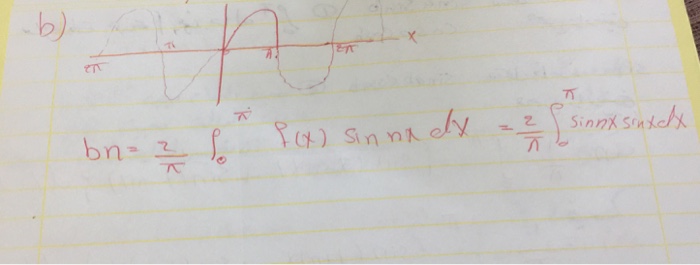 b)
x
2π π π 2π
bn = 2/π ∫₀^π f(x) sin nx dx = 2/π ∫₀^π sin nx sinx dx